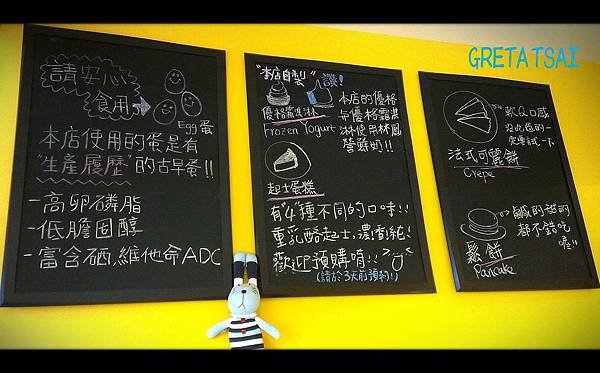 GRETATSAI
請安心
食用→
Egg蛋
本店使用的蛋是有
"生產履歷"的古早蛋!!
-高卵磷脂
-低膽固醇
-富含硒,維他命ADC
"本店自製" 讚!
優格霜淇淋
Frozen Yogurt
本店的優格
与優格霜淇
淋使用林鳳
營鮮奶!!
起士蛋糕
有"4"種不同的口味!!
重乳酪起士,濃香純!
歡迎預購唷!!
(請於3天前預約!)
軟QQ感
一定要試一下
法式可麗餅
Crepe
鹹的甜的
都不錯吃
喔!!
鬆餅
Pancake